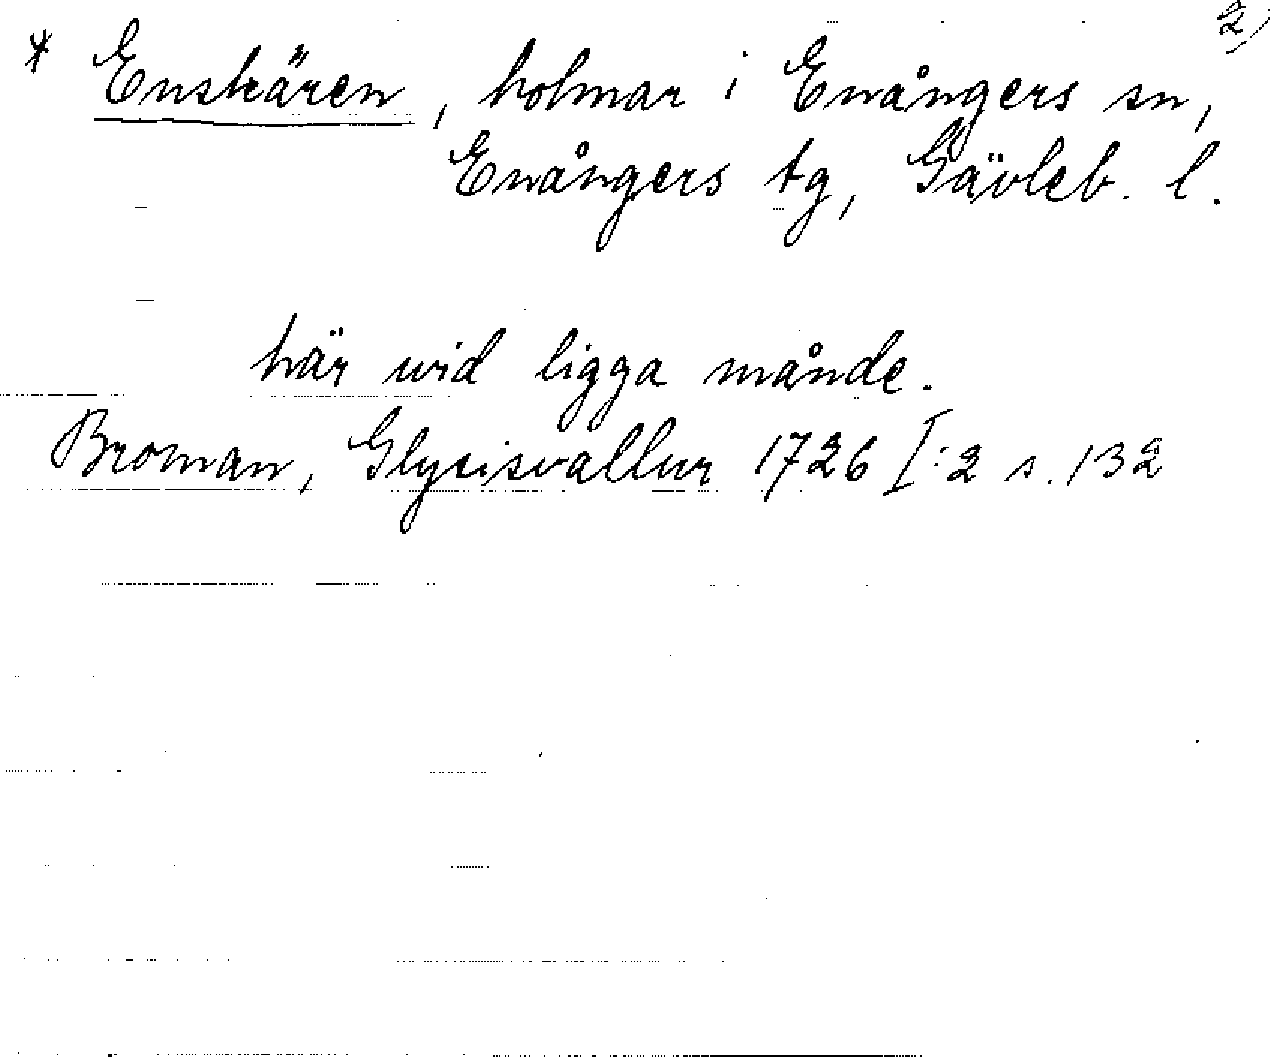 2)
* Enskären, holmar i Enångers sn,
Enångers tg, Gävleb. l.
här wid ligga månde.
Broman, Glysisvallur 1726 I:2 s. 132